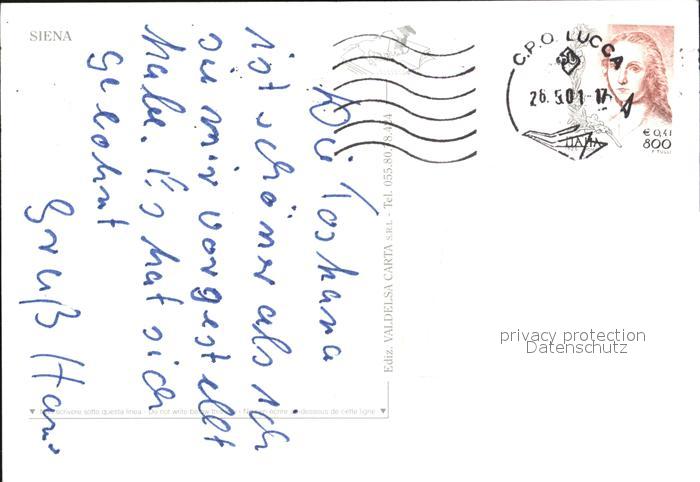 SIENA
C.P.O. LUCCA
26.5.01-17
ITALIA
€ 0,41
800
Die Toskana
ist schöner als ich
sie mir vorgestellt
habe. Es hat sich
gelohnt
Gruß Hans
Ediz. VALDELSA CARTA S.R.L. - Tel. 055.80.78.424
scrivere sotto questa linea - Do not write below this line - Ne rien ecrire au-dessous de cette ligne
privacy protection
Datenschutz